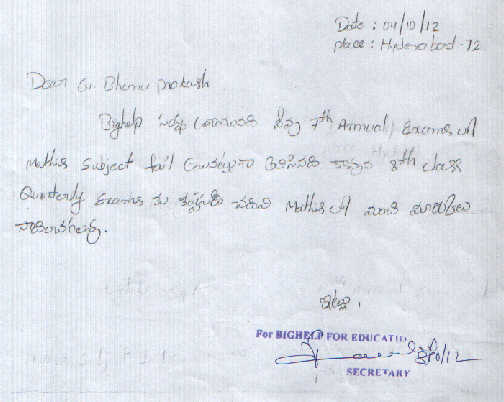 Date : 04/10/12
place : Hyderabad - 72
Dear G. Bhanu prakash
Bighelp సంస్థ నీవు 7th Annual Exams లో
Maths Subject fail అయినట్లుగా తెలిసినది కావున 8th class
Quarterly Exams కు కష్టపడి చదివి Maths లో మంచి మార్కులు
సాధించగలవు.
ఇట్లు,
For BIGHELP FOR EDUCATIO
SECRETARY